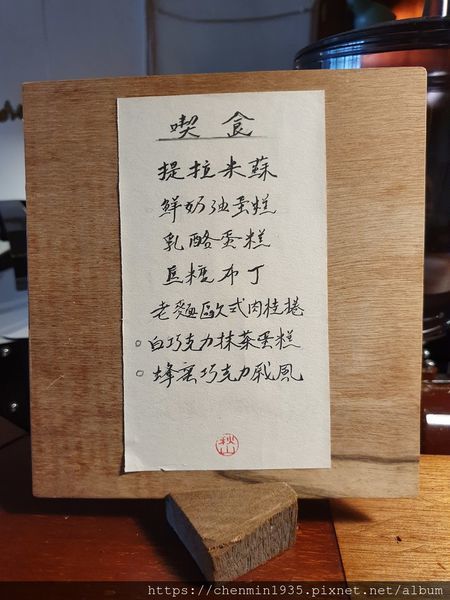 喫食
提拉米蘇
鮮奶油蛋糕
乳酪蛋糕
焦糖布丁
老麵歐式肉桂捲
○白巧克力抹茶蛋糕
○蜂蜜巧克力戚風
秋山
https://chenmin1935.pixnet.net/album